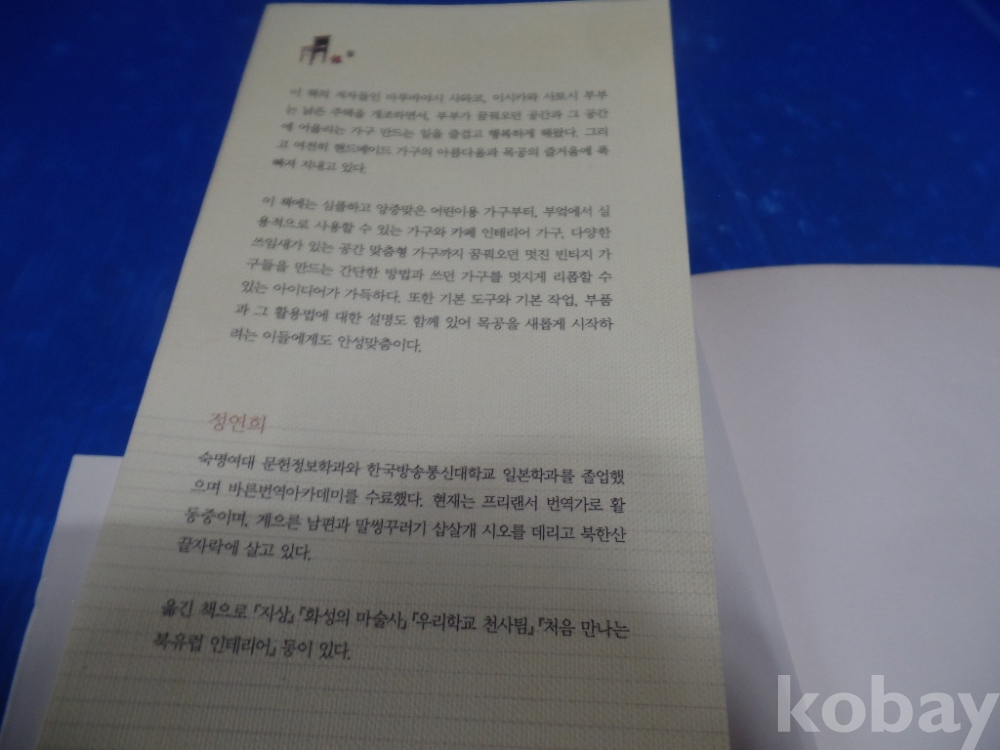 이 책의 저자들인 마루바야시 사와코, 이시카와 사토시 부부
는 낡은 주택을 개조하면서, 부부가 꿈꿔오던 공간과 그 공간
에 어울리는 가구 만드는 일을 즐겁고 행복하게 해왔다. 그리
고 여전히 핸드메이드 가구의 아름다움과 목공의 즐거움에 푹
빠져 지내고 있다.
이 책에는 심플하고 앙증맞은 어린이용 가구부터, 부엌에서 실
용적으로 사용할 수 있는 가구와 카페 인테리어 가구, 다양한
쓰임새가 있는 공간 맞춤형 가구까지 꿈꿔오던 멋진 빈티지 가
구들을 만드는 간단한 방법과 쓰던 가구를 멋지게 리폼할 수
있는 아이디어가 가득하다. 또한 기본 도구와 기본 작업, 부품
과 그 활용법에 대한 설명도 함께 있어 목공을 새롭게 시작하
려는 이들에게도 안성맞춤이다.
정연희
숙명여대 문헌정보학과와 한국방송통신대학교 일본학과를 졸업했
으며 바른번역아카데미를 수료했다. 현재는 프리랜서 번역가로 활
동중이며, 게으른 남편과 말썽꾸러기 삽살개 시오를 데리고 북한산
끝자락에 살고 있다.
옮긴 책으로 『지상』 『화성의 마술사』 『우리학교 천사팀』 『처음 만나는
북유럽 인테리어』 등이 있다.
kobay